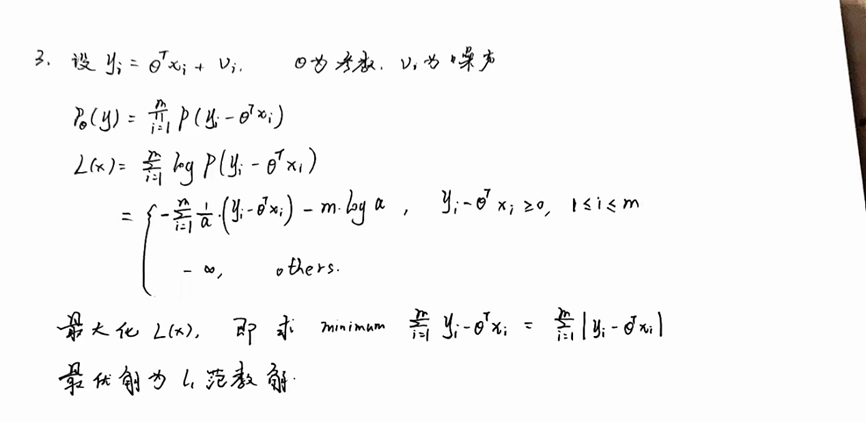 3. 设 yᵢ = θᵀxᵢ + vᵢ. θ为参数. vᵢ为噪声
P_θ(y) = ∏_{i=1}^{m} P(yᵢ - θᵀxᵢ)
L(x) = ∑_{i=1}^{m} log P(yᵢ - θᵀxᵢ)
= { -∑_{i=1}^{m} 1/a · (yᵢ - θᵀxᵢ) - m·log a , yᵢ - θᵀxᵢ ≥ 0, 1 ≤ i ≤ m
-∞, others.
最大化 L(x), 即求 minimum ∑_{i=1}^{m} yᵢ - θᵀxᵢ = ∑_{i=1}^{m} |yᵢ - θᵀxᵢ|
最优解为 l₁ 范数解.